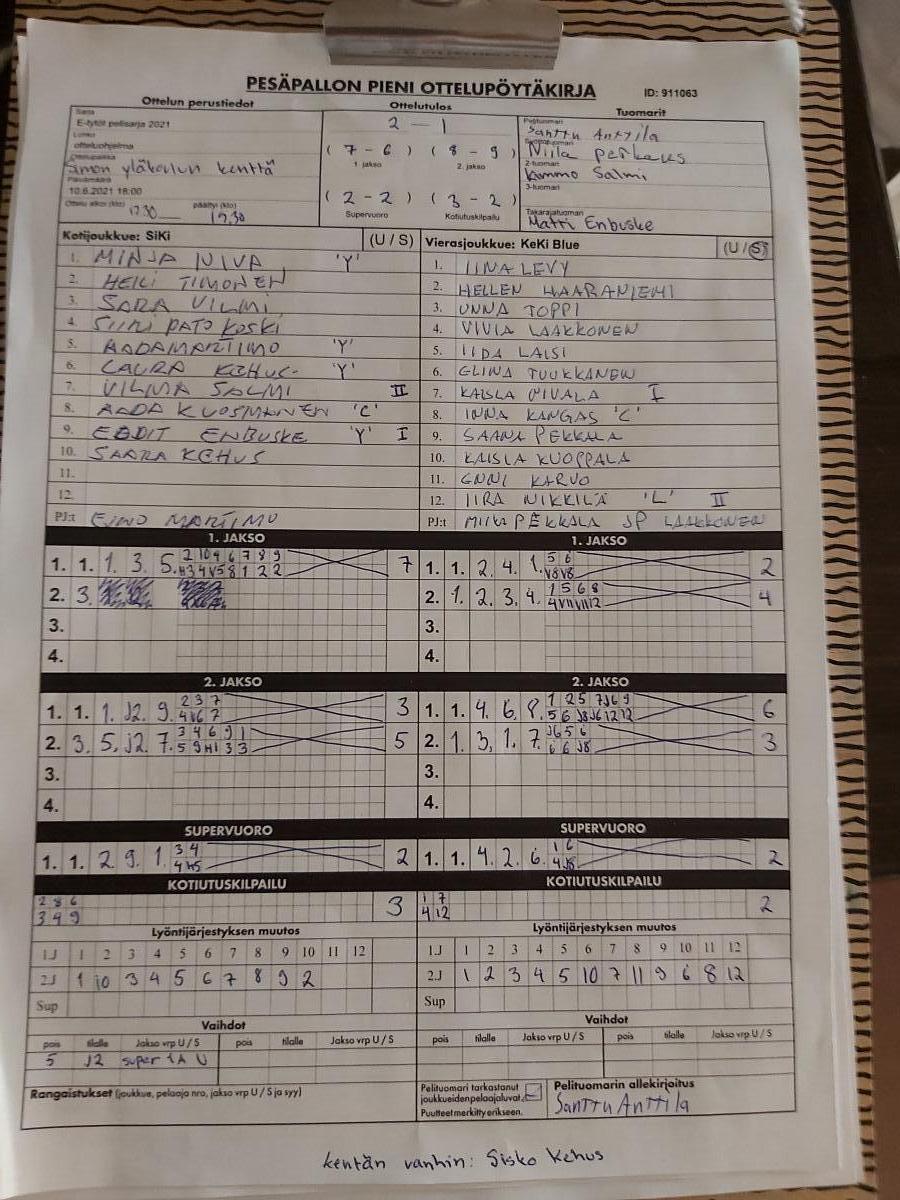 PESÄPALLON PIENI OTTELUPÖYTÄKIRJA
ID: 911063
Ottelun perustiedot
Ottelutulos
Tuomarit
Sarja
E-tytöt pelisarja 2021
Lohko
otteluohjelma
Ottelupaikka
Simon yläkoulun kenttä
Päivämäärä
10.6.2021 18:00
Ottelu alkoi (klo) 17.30 päättyi (klo) 19.30
2 - 1
(7 - 6) (8 - 9)
1. jakso 2. jakso
(2 - 2) (3 - 2)
Supervuoro Kotiutuskilpailu
Pelituomari
Santtu Anttila
Niila Perkaus
2-tuomari
Kimmo Salmi
3-tuomari
Takarajatuomari
Matti Enbuske
Kotijoukkue: SiKi (U / S)
1. MINJA NIVA 'Y'
2. HEILI TIMONEN
3. SARA VILMI
4. SIIRI PATOKOSKI
5. AADA MARTIMO 'Y'
6. LAURA KEHUS 'Y'
7. VILMA SALMI II
8. AADA KUOSMANEN 'C'
9. EEDIT ENBUSKE 'Y' I
10. SAARA KEHUS
11.
12.
PJ:t EINO MARTIMO
Vierasjoukkue: KeKi Blue (U / S)
1. IINA LEVY
2. HELLEN HAARANIEMI
3. UNNA TOPPI
4. VIVIA LAAKKONEN
5. IIDA LAISI
6. ELINA TUUKKANEN
7. KAISLA NIVALA I
8. INNA KANGAS 'C'
9. SAANA PEKKALA
10. KAISLA KUOPPALA
11. ENNI KARVO
12. IIRA NIKKILÄ 'L' II
PJ:t MIIKA PEKKALA JP LAAKKONEN
1. JAKSO
1. 1. 1. 3. 5. 2 10 4 6 7 8 9 7
2. 3.
3.
4.
1. JAKSO
1. 1. 2. 4. 1. 5 6 2
V8 V8
2. 1. 2. 3. 4. 1 5 6 8 4
3.
4.
2. JAKSO
1. 1. 1. J2. 9. 2 3 7 3
4 V6 7
2. 3. 5. J2. 7. 3 4 6 9 1 5
5 9 H1 3 3
3.
4.
2. JAKSO
1. 1. 4. 6. 8. 1 2 5 7 J6 9 6
5 6 J8 J6 12 12
2. 1. 3. 1. 7. J6 5 6 3
6 6 J8
3.
4.
SUPERVUORO
1. 1. 2. 9. 1. 3 4 2
4 H5
SUPERVUORO
1. 1. 4. 2. 6. 1 6 2
4 J8
KOTIUTUSKILPAILU
2 8 6 3
3 4 9
KOTIUTUSKILPAILU
1 7 2
4 12
Lyöntijärjestyksen muutos
1.J 1 2 3 4 5 6 7 8 9 10 11 12
2.J 1 10 3 4 5 6 7 8 9 2
Sup
Lyöntijärjestyksen muutos
1.J 1 2 3 4 5 6 7 8 9 10 11 12
2.J 1 2 3 4 5 10 7 11 9 6 8 12
Sup
Vaihdot
pois tilalle Jakso vrp U / S pois tilalle Jakso vrp U / S
5 J2 super 1A U
Vaihdot
pois tilalle Jakso vrp U / S pois tilalle Jakso vrp U / S
Rangaistukset (joukkue, pelaaja nro, jakso vrp U / S ja syy)
Pelituomari tarkastanut
joukkueiden pelaajaluvat.
Puutteet merkitty erikseen.
Pelituomarin allekirjoitus
Santtu Anttila
kentän vanhin: Sisko Kehus